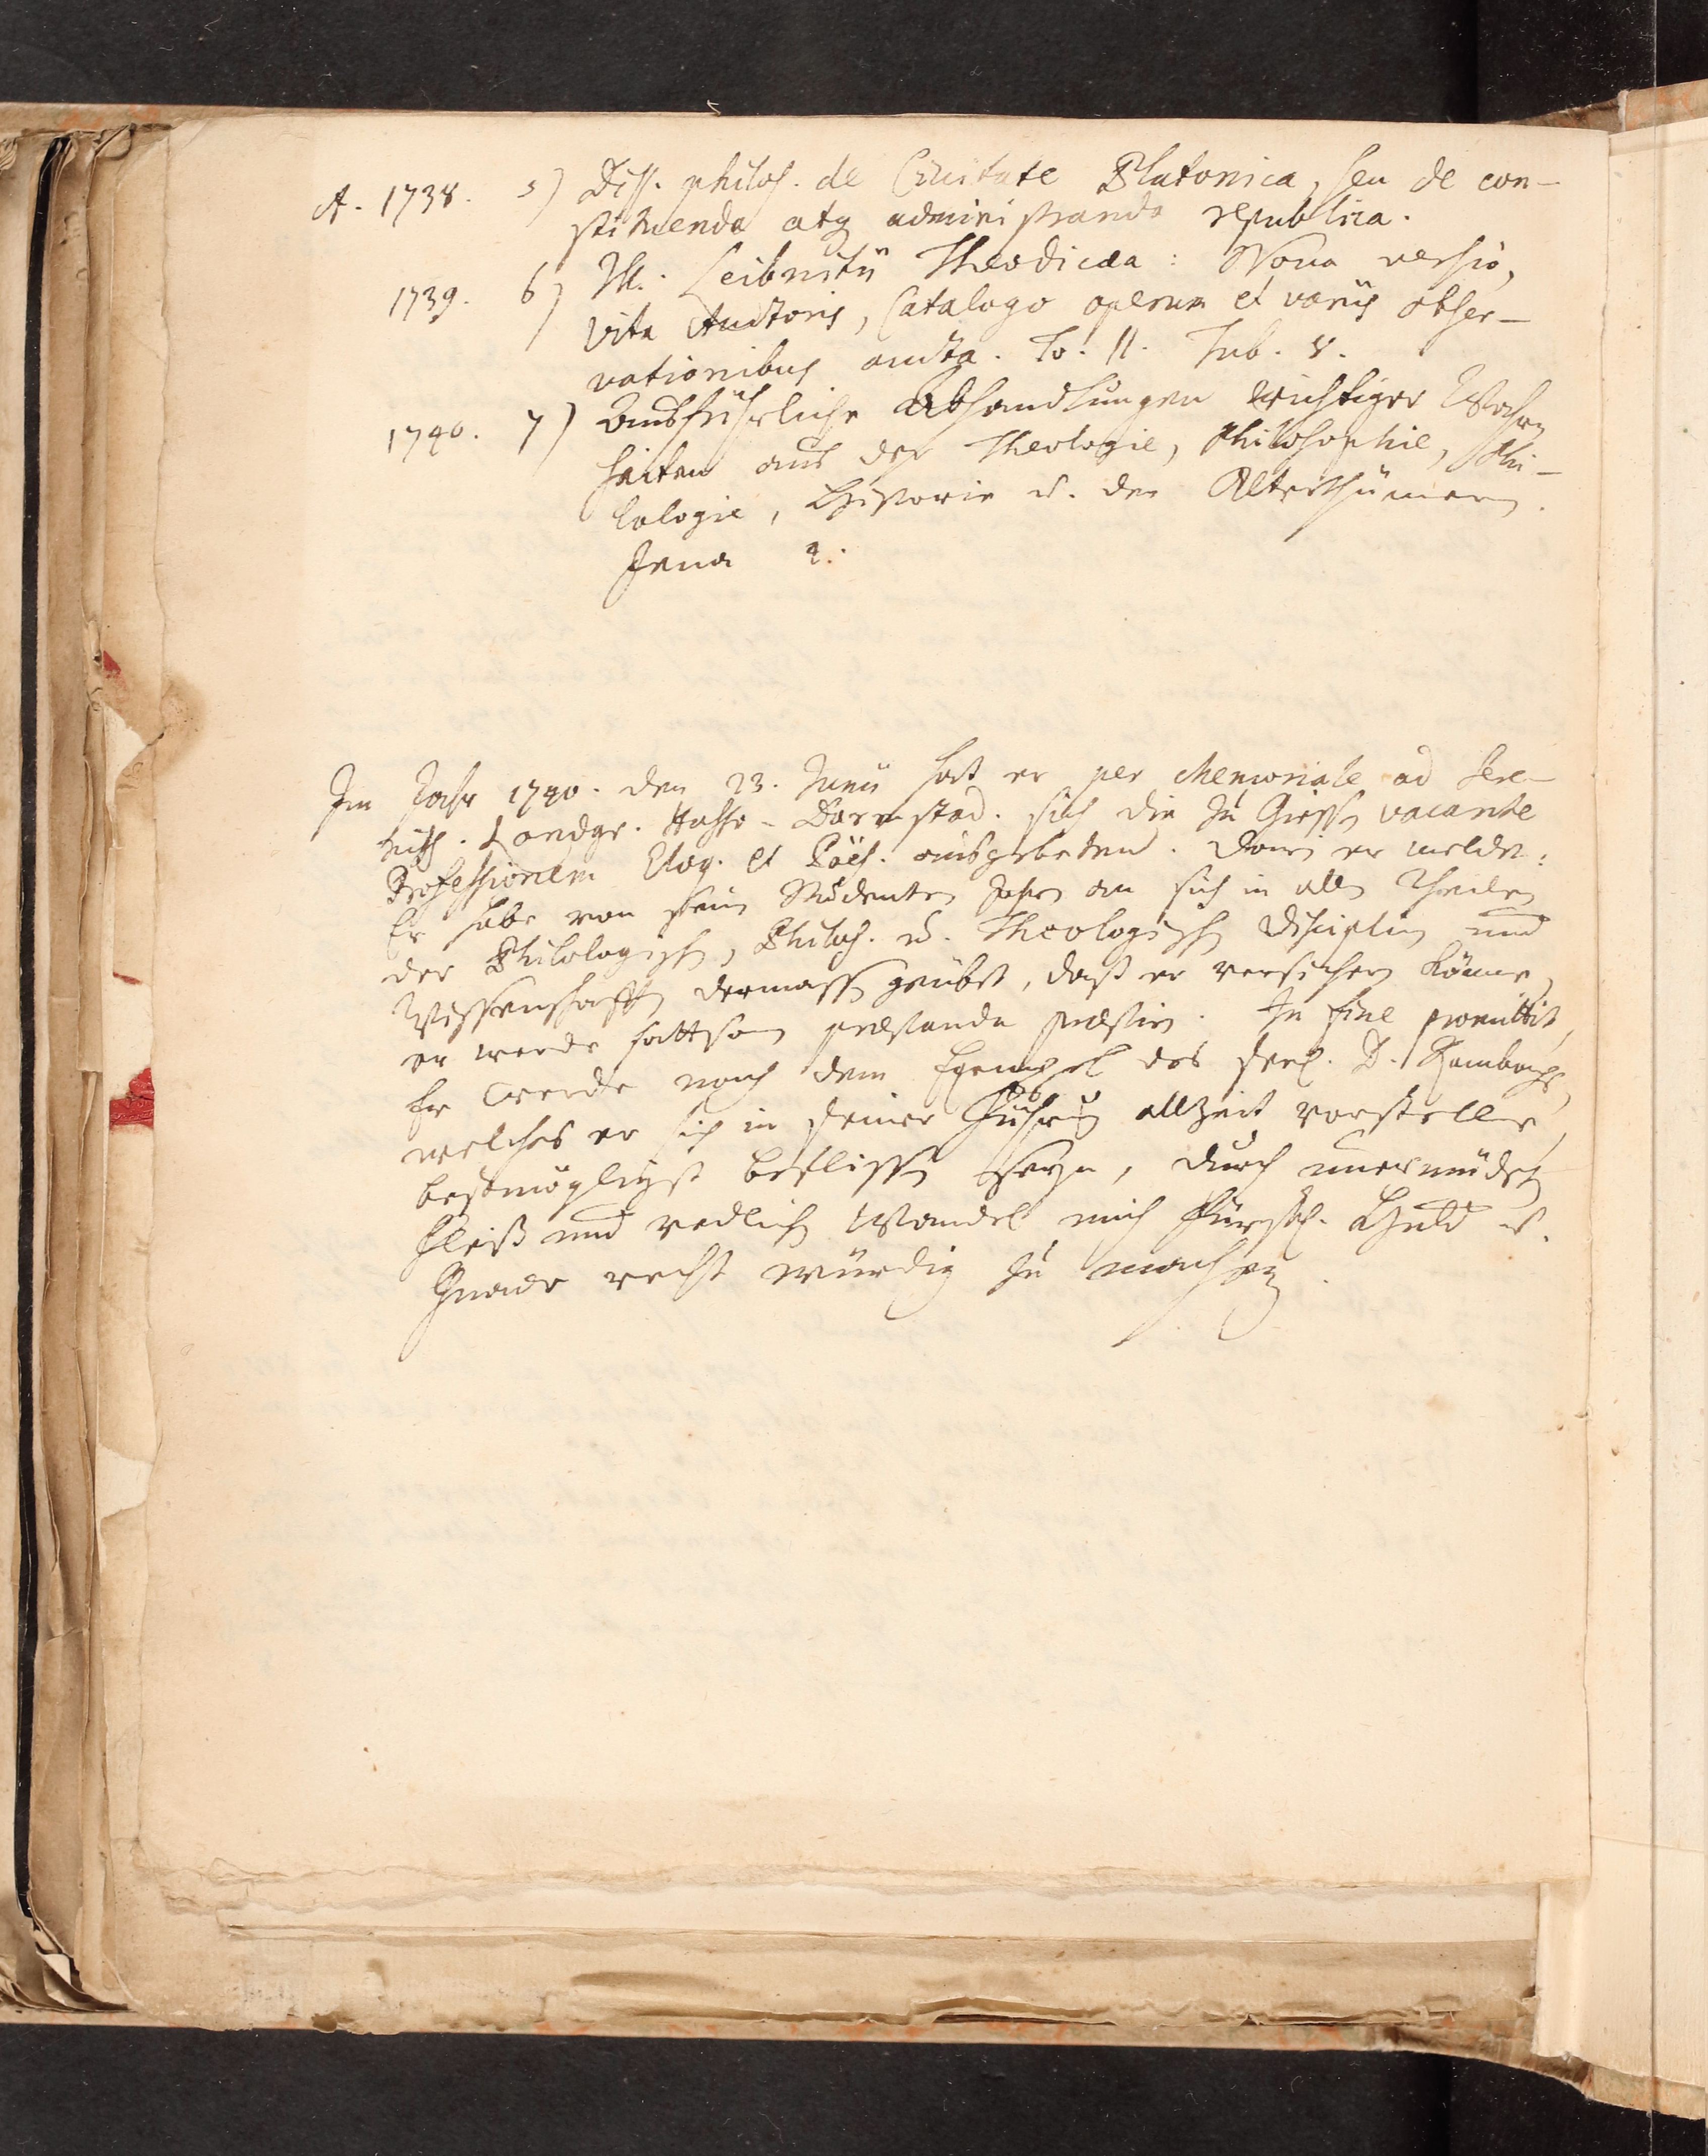 A. 1738. 5) Diss. philos. de Civitate Platonica, seu de con-
stituenda atq administranda republica.
1739. 6) Ill. Leibnitii Theodicæa: Nova versio,
vita Auctoris, Catalogo operum et variis obser-
vationibus aucta. To. II. Tub. 8.
1740. 7) Ausführliche Abhandlungen wichtiger Wahr-
heiten aus der Theologie, Philosophie, Phi-
lologie, Historie u. den Alterthümern.
Jena 4.
Im Jahr 1740. den 23. Junii hat er per Memoriale ad Sere-
niss. Landgr. Hasso-Darmstad. sich die zu Giessen vacante
Professionem Eloq. et Poës. ausgebeten. Darin er meldet:
Er habe von seinen Studenten Jahren an sich in allen Theilen
der Philologischen, Philos. u. Theologischen Disciplin und
Wissenschafften dermassen geübet, daß er versichern könne,
er werde sattsam præstanda præstiren. In fine promittit,
Er werde nach dem Exempel des seel. D. Rambachs,
welches er sich in seiner Führung allzeit vorstelle,
bestmöglichst beflissen seyn, durch unermüdeten
Fleiß und redlichen Wandel mich Fürstl. Huld u.
Gnade recht würdig zu machen.